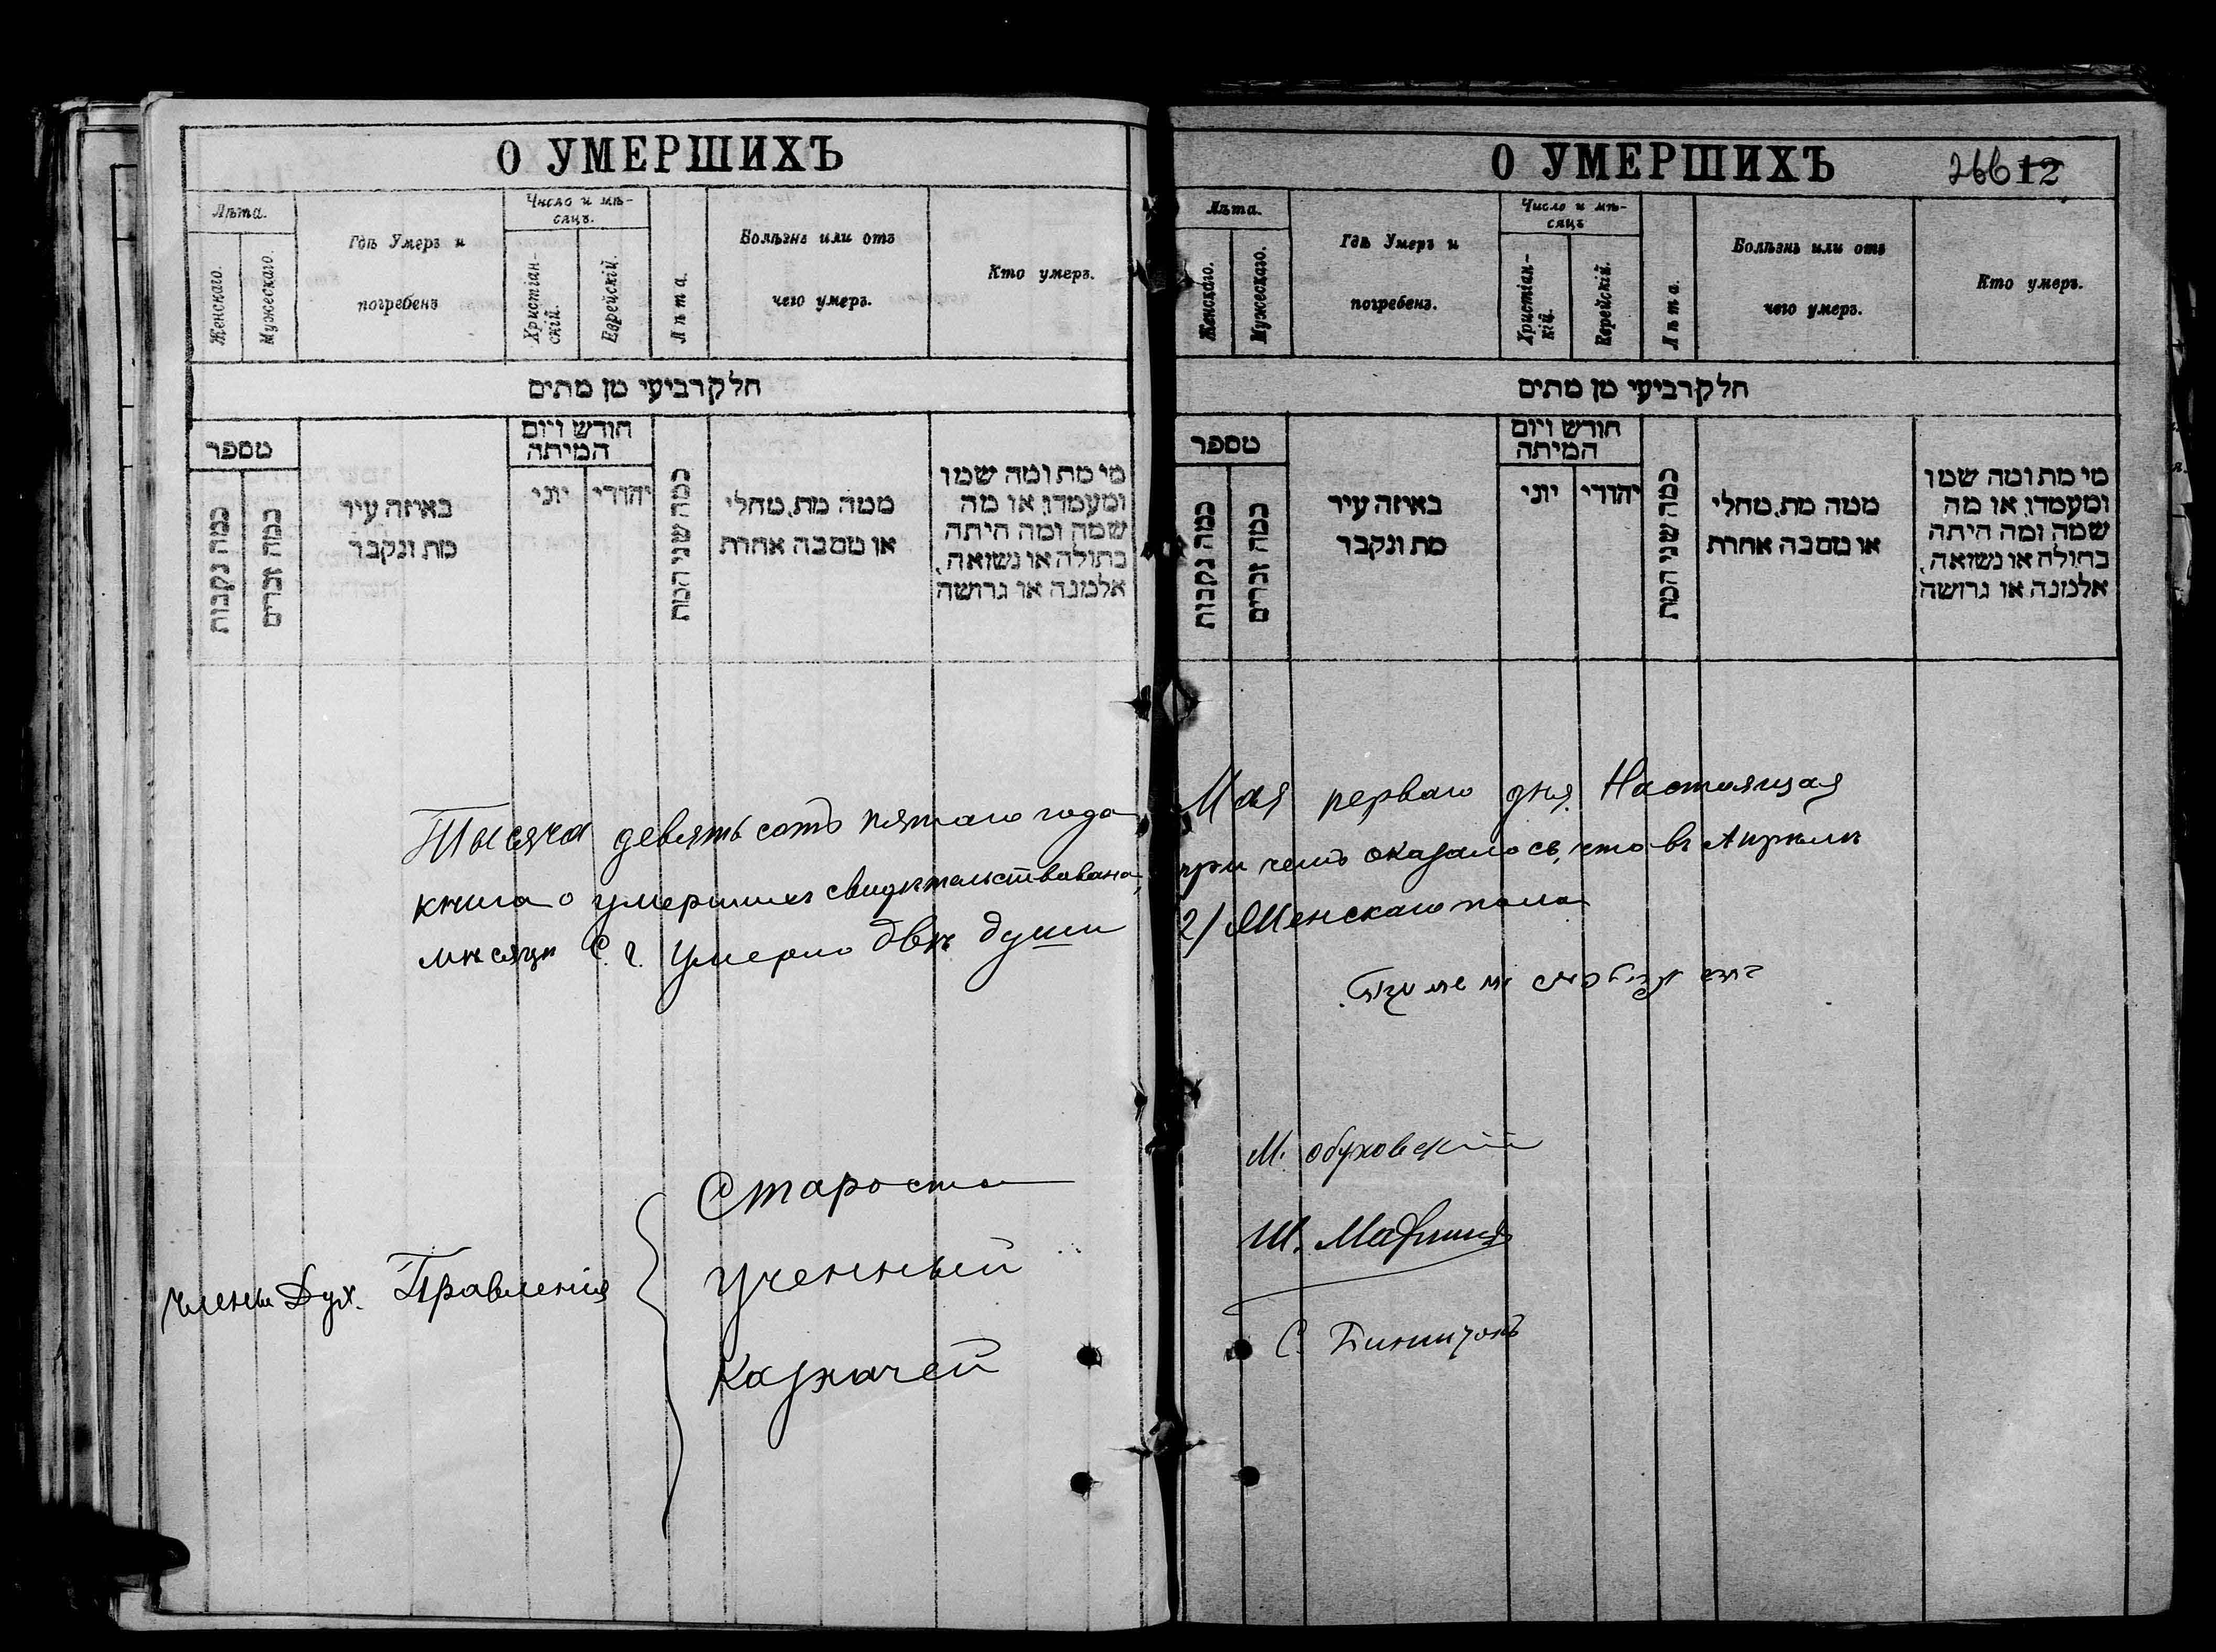 О УМЕРШИХЪ
Лѣта.
Женскаго.
Мужескаго.
Гдѣ Умеръ и
погребенъ
Число и мѣ-
сяцъ.
Христіан-
скій.
Еврейскій.
Лѣта.
Болѣзнь или отъ
чего умеръ.
Кто умеръ.
חלק רביעי מן מתים
מספר
כמה נקבות
כמה זכרים
באיזה עיר
מת ונקבר
חודש ויום
המיתה
יוני
יהודי
כמה שני המת
ממה מת, מחלי
או מסבה אחרת
מי מת ומה שמו
ומעמדו, או מה
שמה ומה היתה
בתולה או נשואה,
אלמנה או גרושה
Тысяча девять сотъ пятаго года
книга о умершихъ свидѣтельствована,
мѣсяцѣ С. г. умерло двѣ души
Члены Дух. Правленія
Староста
Ученный
Казначей
О УМЕРШИХЪ
266 12
Лѣта.
Женскаго.
Мужескаго.
Гдѣ Умеръ и
погребенъ.
Число и мѣ-
сяцъ
Христіан-
кій.
Еврейскій.
Лѣта.
Болѣзнь или отъ
чего умеръ.
Кто умеръ.
חלק רביעי מן מתים
מספר
כמה נקבות
כמה זכרים
באיזה עיר
מת ונקבר
חודש ויום
המיתה
יוני
יהודי
כמה שני המת
ממה מת, מחלי
או מסבה אחרת
מי מת ומה שמו
ומעמדו, או מה
שמה ומה היתה
בתולה או נשואה,
אלמנה או גרושה
Мая перваго дня. Настоящая
при чемъ оказалось, что въ Апрѣлѣ
2/ Женскаго пола
М. Обуховскій
Ш.
С.